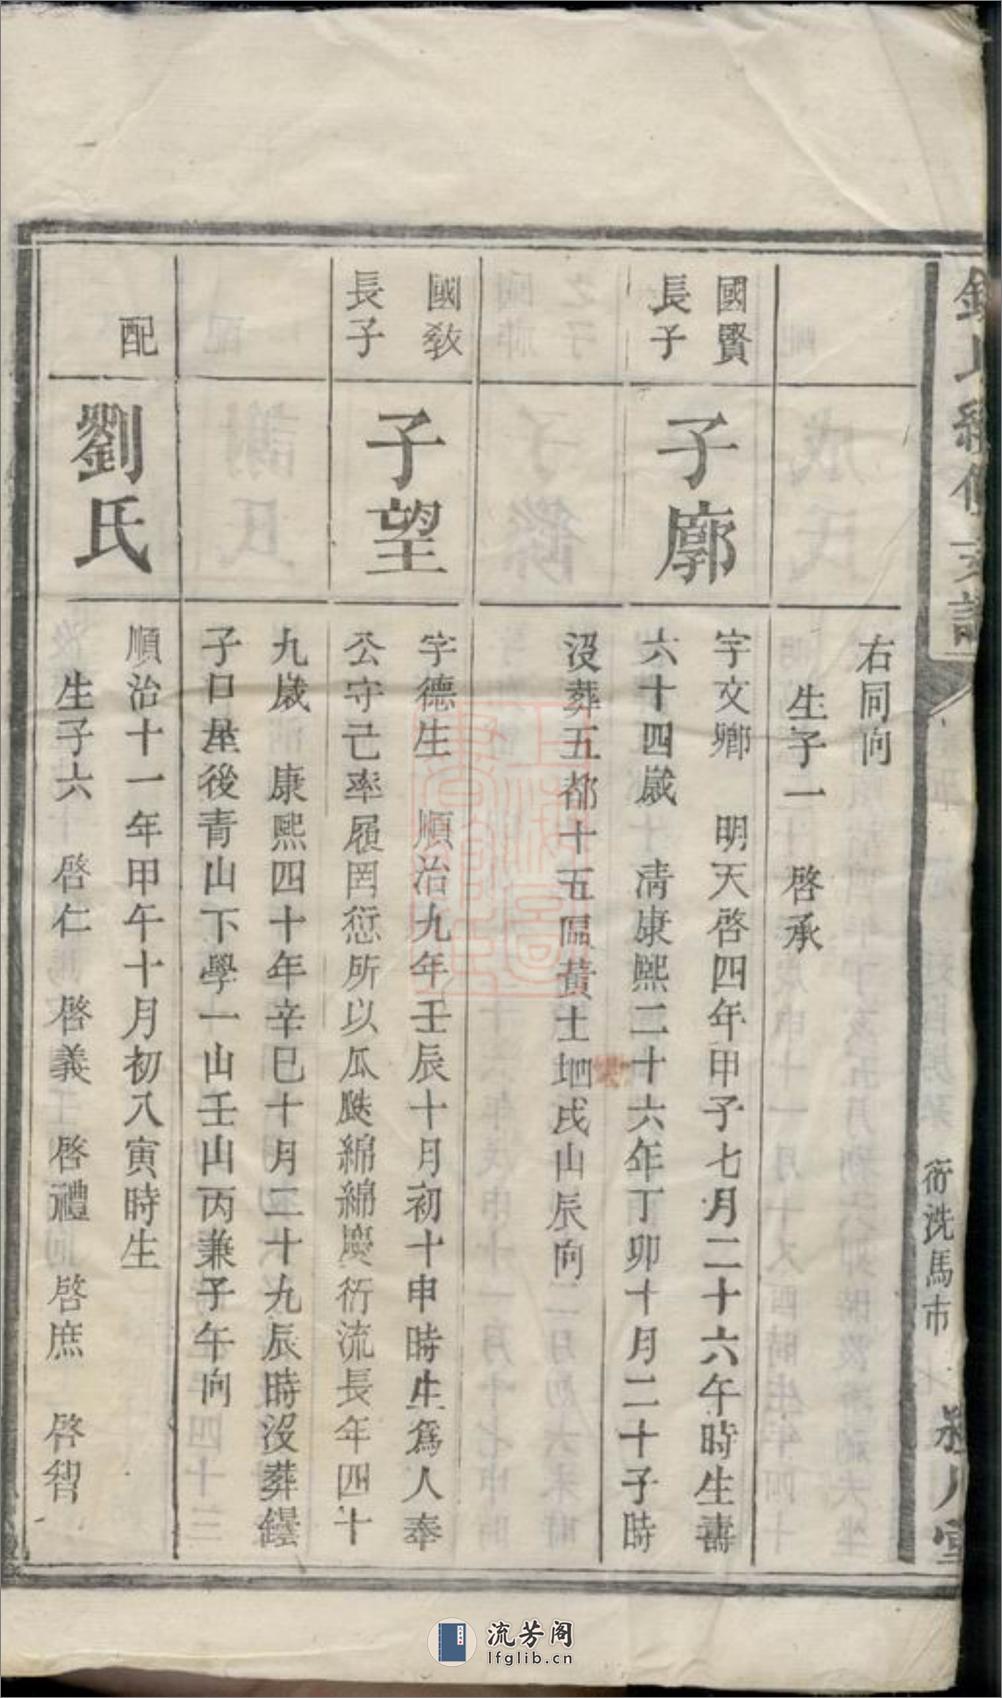 氏續修支譜
衍洗馬市
七
右同向
生子一　啓承
國賢
長子
子廓
字文鄉　明天啓四年甲子七月二十六午時生壽
六十四歲　清康熙二十六年丁卯十月二十子時
沒葬五都十五區黃土坳戌山辰向
國敎
長子
子望
字德生　順治九年壬辰十月初十申時生爲人奉
公守己率履罔愆所以瓜瓞綿綿慶衍流長年四十
九歲　康熙四十年辛巳十月二十九辰時沒葬鐽
子口屋後青山下學一山壬山丙兼子午向
配
劉氏
順治十一年甲午十月初入寅時生
生子六　啓仁　啓義　啓禮　啓庶　啓智
流芳阁
lfglib.cn